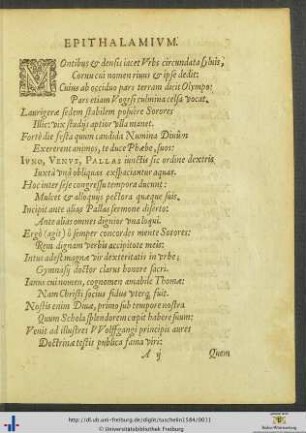 EPITHALAMIVM.
MOntibus & densis iacet Vrbs circundata sylvis,
Cornu cui nomen riuus & ipse dedit:
Cuius ab occiduo pars terram dicit Olympo:
Pars etiam Vogesi culmina celsa vocat.
Laurigeræ sedem stabilem posuere Sorores
Illic: vix studijs aptior vlla manet.
Fortè die festa quum candida Numina Divûm
Exererent animos, te duce Phœbe, suos:
IVNO, VENVS, PALLAS iunctis sic ordine dextris
Iuxtà vnà obliquas exspaciantur aquas.
Hoc inter sese congressu tempora ducunt:
Mulcet & alloquijs pectora quæque suis,
Incipit ante alias Pallas sermone diserto:
Ante alias omnes dignior vna loqui.
Ergò (agit) ô semper concordes mente Sorores:
Rem dignam verbis accipitote meis:
Intus adest magnæ vir dexteritatis in vrbe;
Gymnasij doctor clarus honore sacri.
Ianus cui nomen, cognomen amabile Thomæ:
Nam Christi socius fidus vterq, fuit.
Nostis enim Divæ, primo sub tempore nostra
Quum Schola splendorem cœpit habere suum:
Venit ad illustres VVolffgangi principis aures
Doctrinæ testis publica fama viri:
A ij
Quem
http://dl.ub.uni-freiburg.de/diglit/tuschelin1584/0003
© Universitätsbibliothek Freiburg